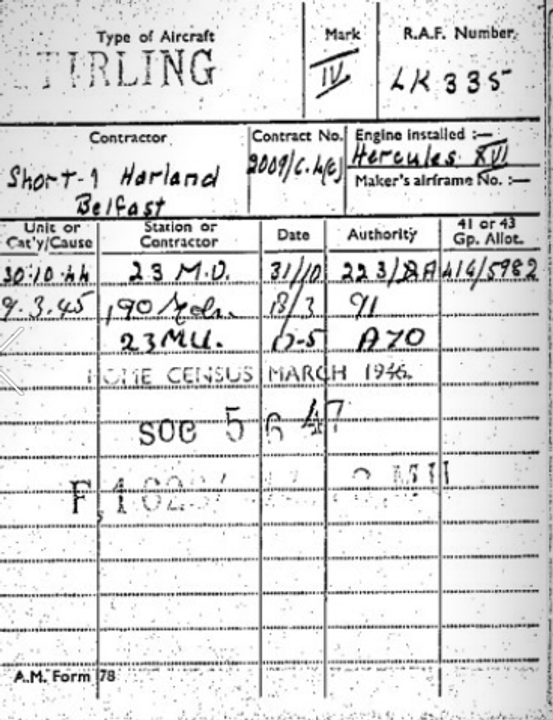 Type of Aircraft
Mark
R.A.F. Number.
STIRLING
IV
LK 335
Contractor.
Contract No.
Engine installed :—
Short-& Harland
Belfast
2009/C.4(c)
Hercules XVI
Maker's airframe No. :—
Unit or
Cat'y/Cause
Station or
Contractor
Date
Authority
41 or 43
Gp. Allot.
30.10.44 23 M.U. 31/10 223/RA 414/5982
9.3.45 190 Sqdn. 13/3 91
23MU. A70
HOME CENSUS MARCH 1946.
SOC 5 6 47
A.M. Form 78